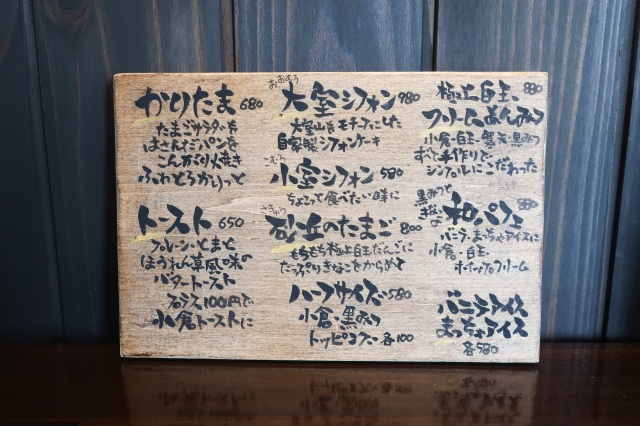 かりたま 680
たまごサラダを
はさんだパンを
こんがり火焼き
ふわとろかりっと
トースト 650
プレーン・とまと
ほうれん草風味の
バタートースト
プラス100円で
小倉トーストに
おおむろ
大室シフォン 980
大室山をモチーフにした
自家製シフォンケーキ
こむろ
小室シフォン 580
ちょこっと食べたい時に
さきゅう
砂丘のたまご 800
もちもち極上白玉だんごに
たっぷりきなこをからめて
ハーフサイズ 580
小倉 黒みつ
トッピング 各100
極上白玉 880
クリームあんみつ
小倉・白玉・寒天・黒みつ
手作りで
シンプルにこだわった
黒みつと
きなこな
和パフェ 880
バニラ・まっちゃアイスに
小倉・白玉・
ホイップクリーム
バニラアイス
まっちゃアイス
各580